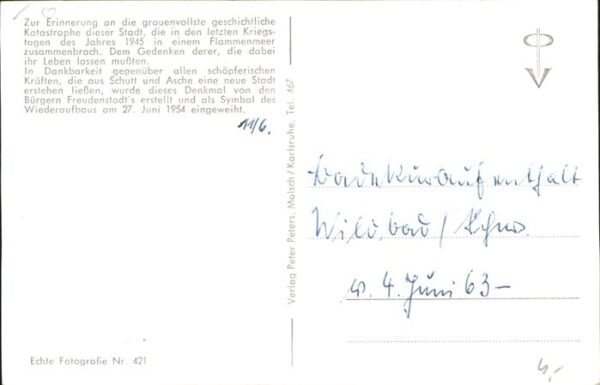 Zur Erinnerung an die grauenvollste geschichtliche
Katastrophe dieser Stadt, die in den letzten Kriegs-
tagen des Jahres 1945 in einem Flammenmeer
zusammenbrach. Dem Gedenken derer, die dabei
ihr Leben lassen mußten.
In Dankbarkeit gegenüber allen schöpferischen
Kräften, die aus Schutt und Asche eine neue Stadt
erstehen ließen, wurde dieses Denkmal von den
Bürgern Freudenstadt's erstellt und als Symbol des
Wiederaufbaus am 27. Juni 1954 eingeweiht.
11/6.
Echte Fotografie Nr. 421
Verlag Peter Peters, Malsch/Karlsruhe, Tel. 467
Badekuraufenthalt
Wildbad / Schw.
4. Juni 63-
4,-